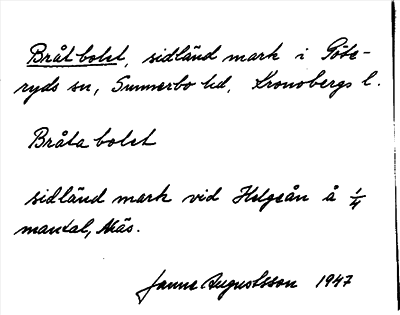 Bråtbolet, sidländ mark i Göte-
ryds sn, Sunnerbo hd, Kronobergs l.
Bråtabolet
sidländ mark vid Helgeån å 1/4
mantal, Näs.
Janne Augustsson 1947